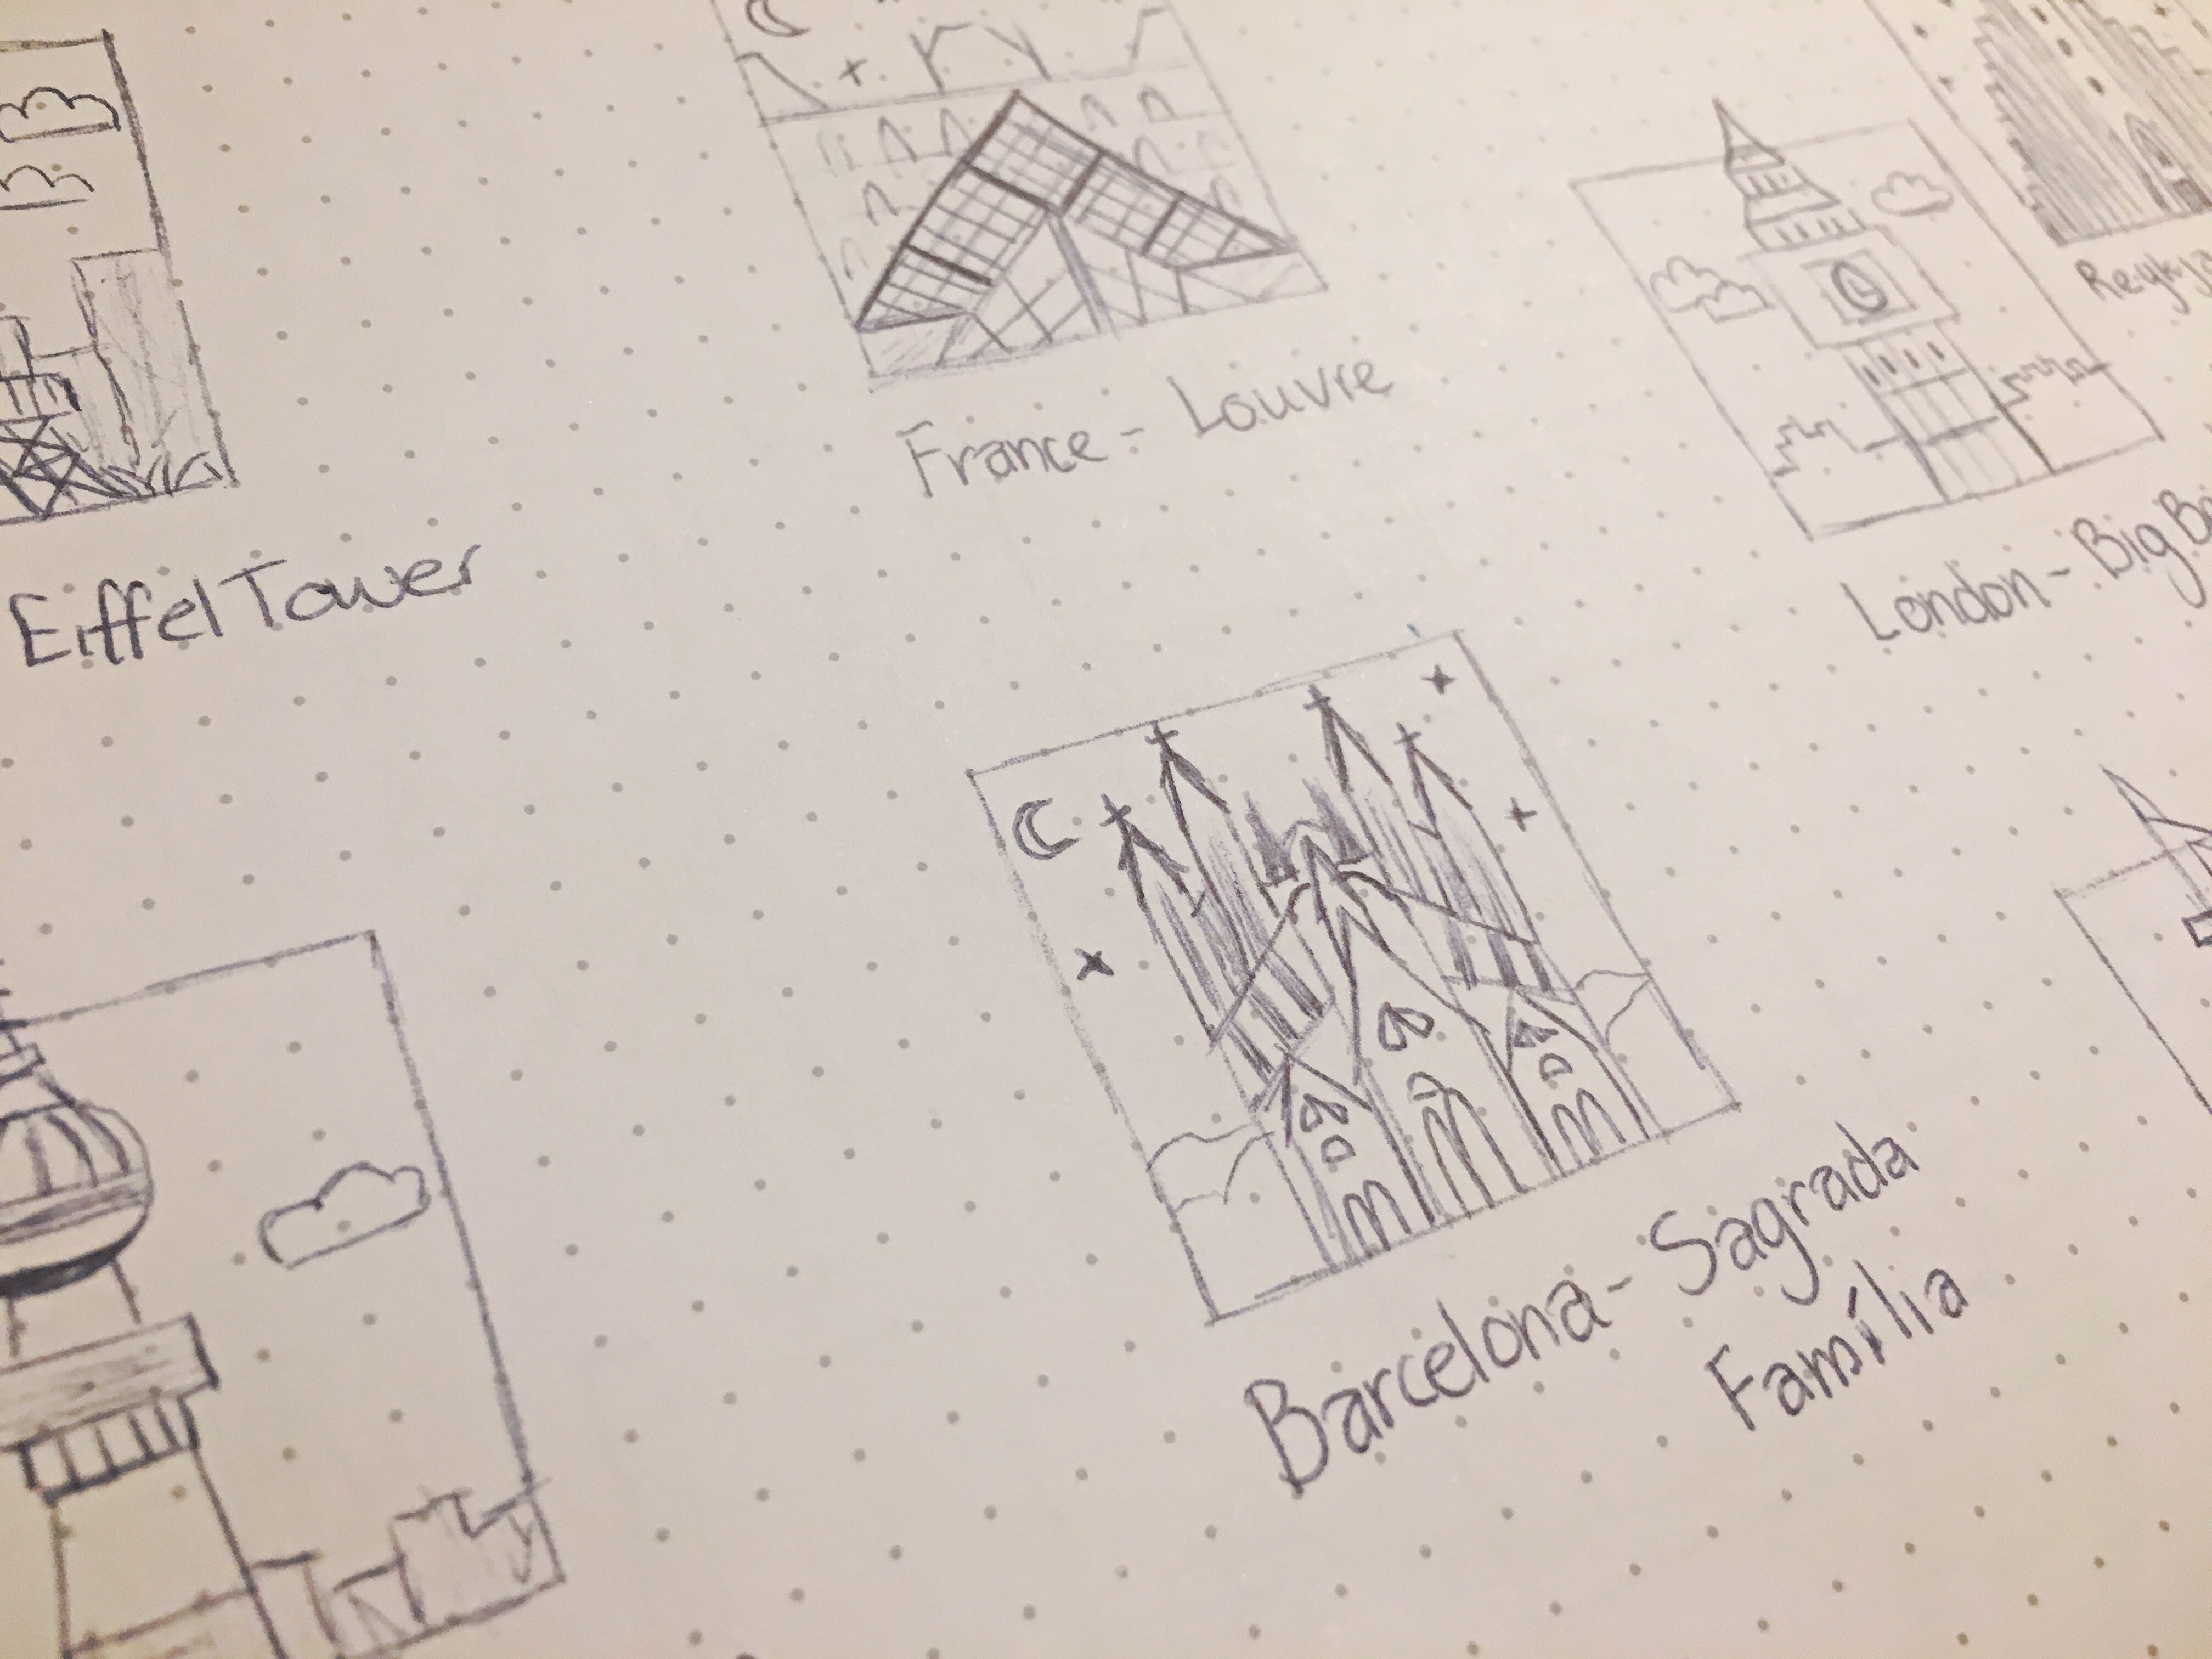 Eiffel Tower
France - Louvre
London - Big
Barcelona - Sagrada
Família